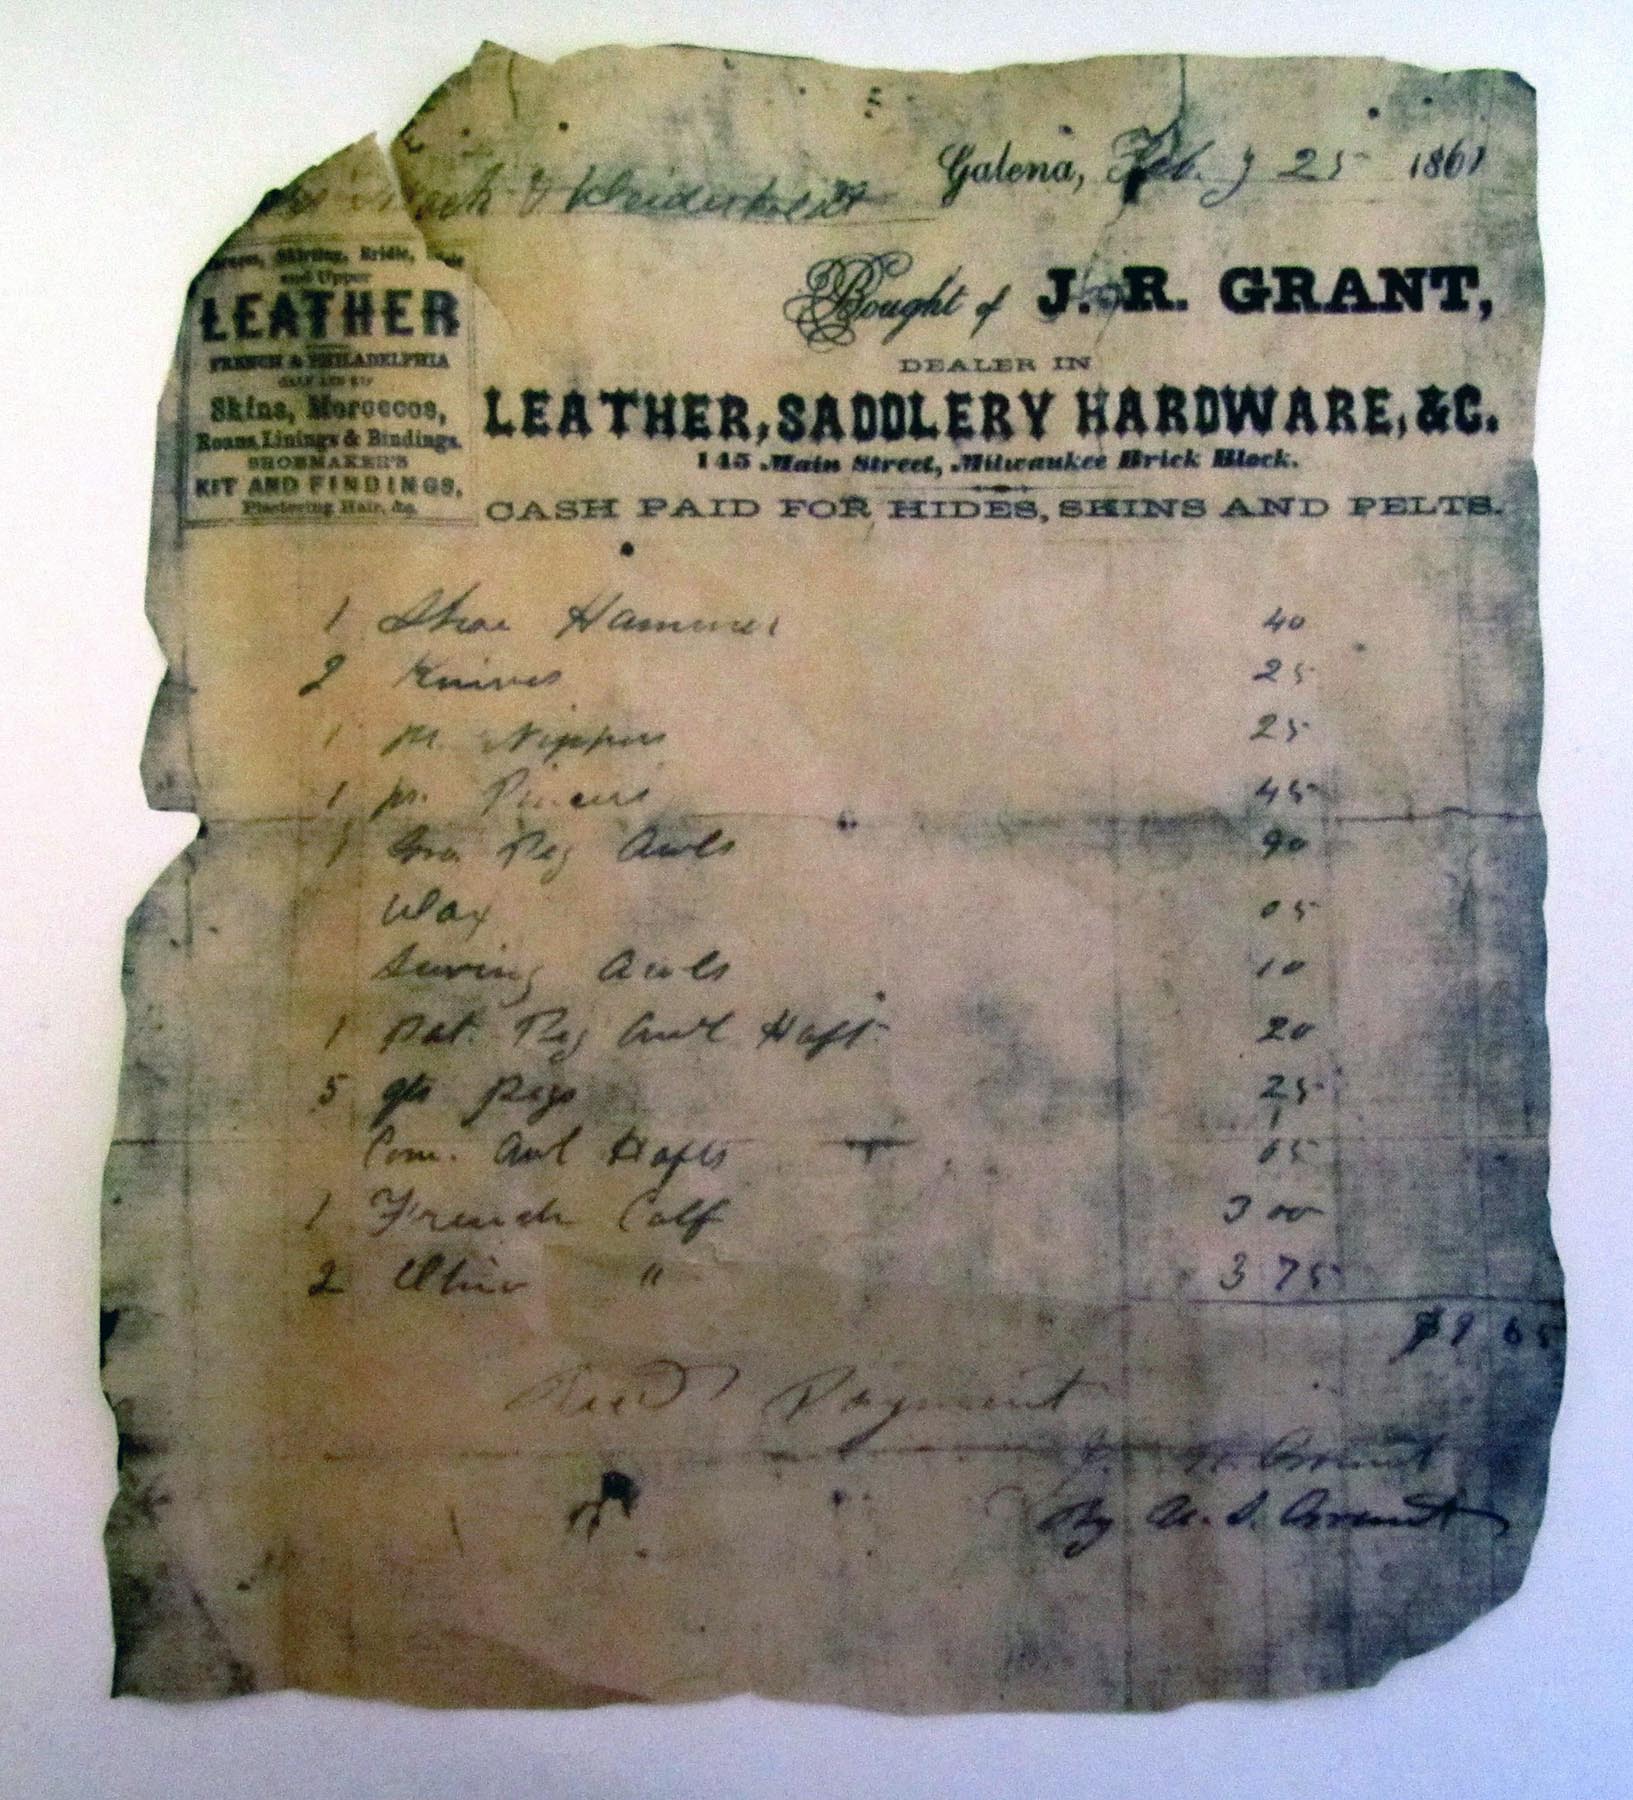 Galena, Feb.y 25 1861
Mack &
Skirting, Bridle,
and Upper
LEATHER
FRENCH & PHILADELPHIA
CALF AND KIP
Skins, Moroccos,
Roans, Linings & Bindings.
SHOEMAKER'S
KIT AND FINDINGS,
Plastering Hair, &c.
Bought of J. R. GRANT,
DEALER IN
LEATHER, SADDLERY HARDWARE, &C.
145 Main Street, Milwaukee Brick Block.
CASH PAID FOR HIDES, SKINS AND PELTS.
1 Shoe Hammer 40
2 Knives 25
1 pr. Nippers 25
1 pr. Pincers 45
1 Gro Peg Awls 90
Wax 05
Sewing Awls 10
1 Pat. Peg Awl Haft 20
5 qts Pegs 25
Com. Awl Hafts 05
1 French Calf 3 00
2 Ohio " 3 75
$9 65
Recd Payment
J. R. Grant
By U. S. Grant